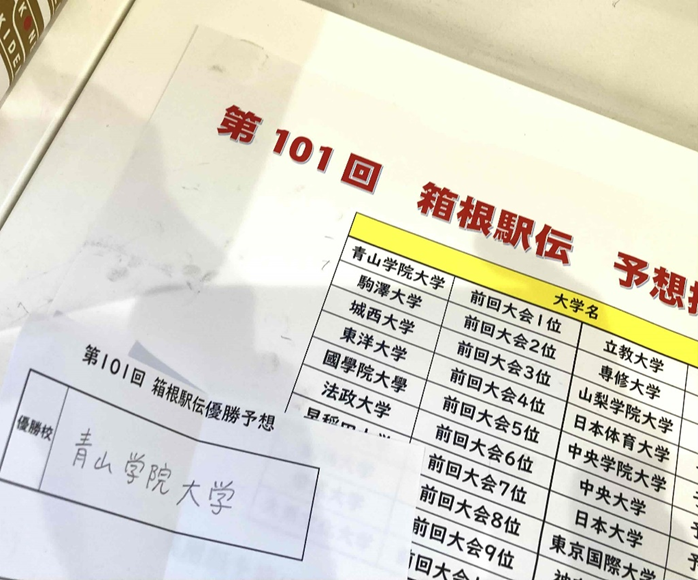 第101回 箱根駅伝 予想
大学名
青山学院大学 前回大会1位 立教大学
駒澤大学 前回大会2位 専修大学
城西大学 前回大会3位 山梨学院大学
東洋大学 前回大会4位 日本体育大学
國學院大學 前回大会5位 中央学院大学
法政大学 前回大会6位 中央大学
前回大会7位 日本大学
前回大会8位 東京国際大学
前回大会9位
第101回 箱根駅伝優勝予想
優勝校 青山学院大学